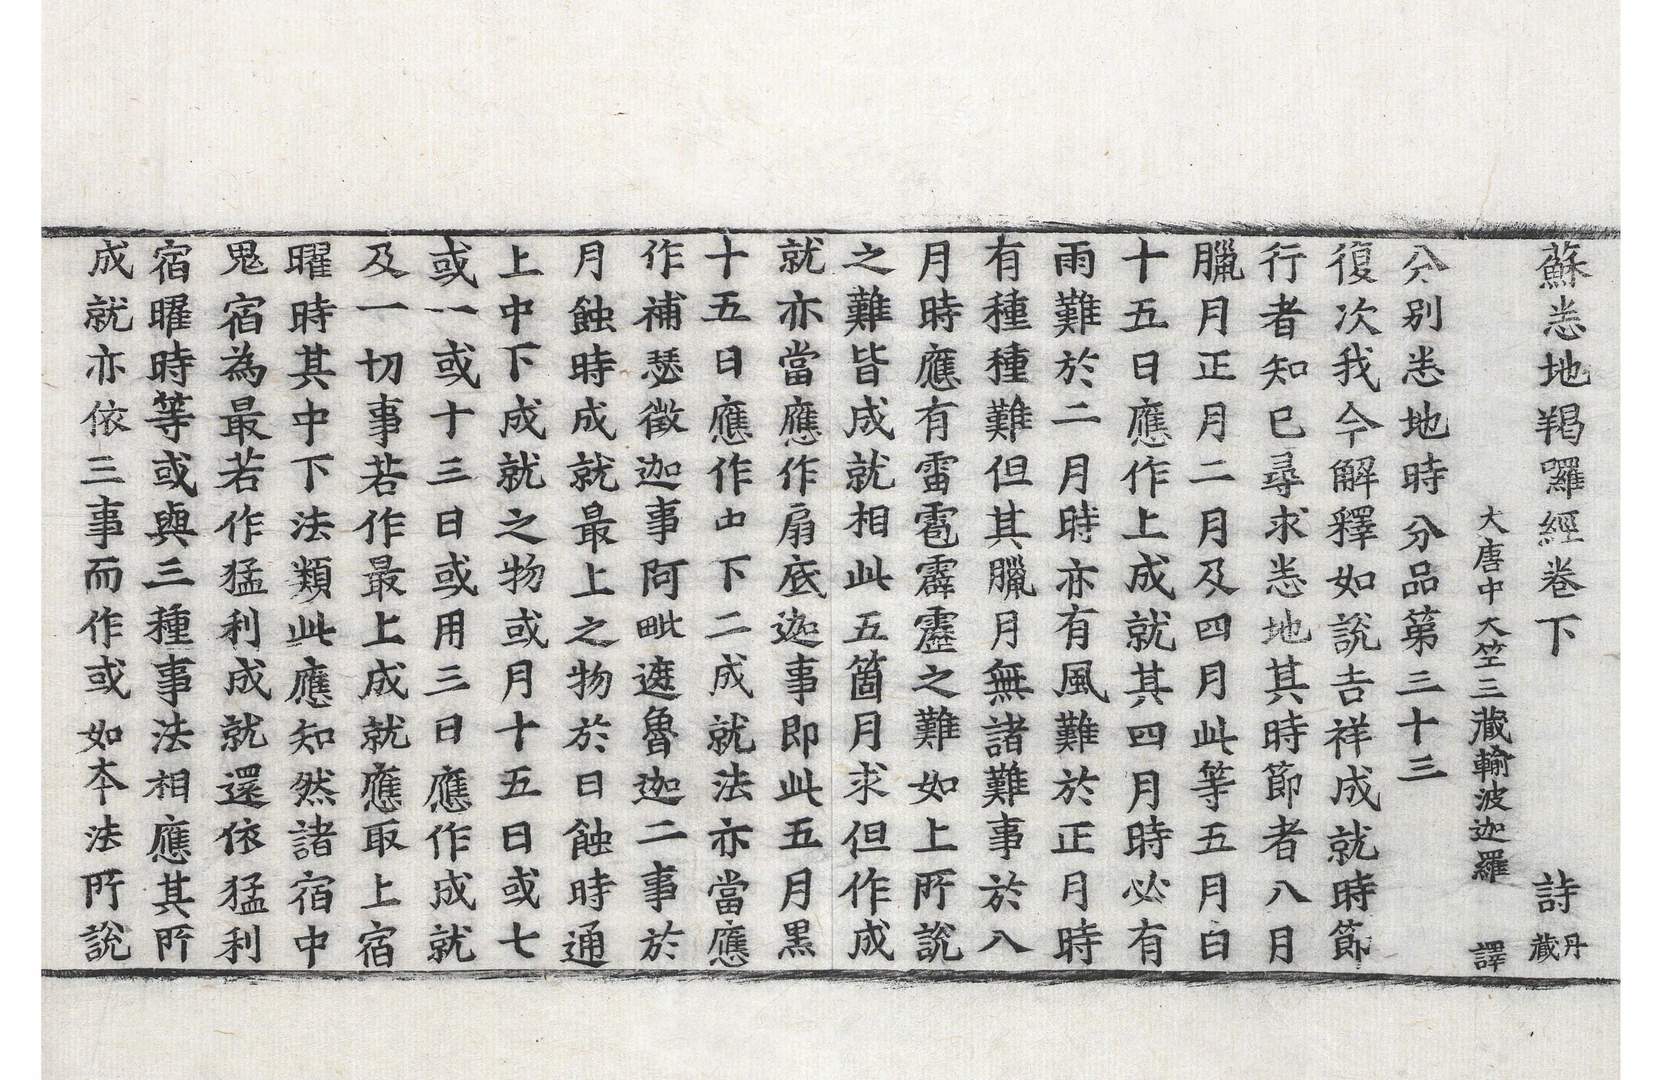 蘇悉地羯囉經卷下 詩 丹藏
大唐中天竺三藏輸波迦羅 譯
分別悉地時分品第三十三
復次我今解釋如說吉祥成就時節
行者知已尋求悉地其時節者八月
臘月正月二月及四月此等五月白
十五日應作上成就其四月時必有
雨難於二月時亦有風難於正月時
有種種難但其臘月無諸難事於八
月時應有雷雹霹靂之難如上所說
之難皆成就相此五箇月求但作成
就亦當應作扇底迦事即此五月黑
十五日應作中下二成就法亦當應
作補瑟徵迦事阿毗遮魯迦二事於
月蝕時成就最上之物於日蝕時通
上中下成就之物或月十五日或七
或一或十三日或用三日應作成就
及一切事若作最上成就應取上宿
曜時其中下法類此應知然諸宿中
鬼宿為最若作猛利成就還依猛利
宿曜時等或與三種事法相應其所
成就亦依三事而作或如本法所說